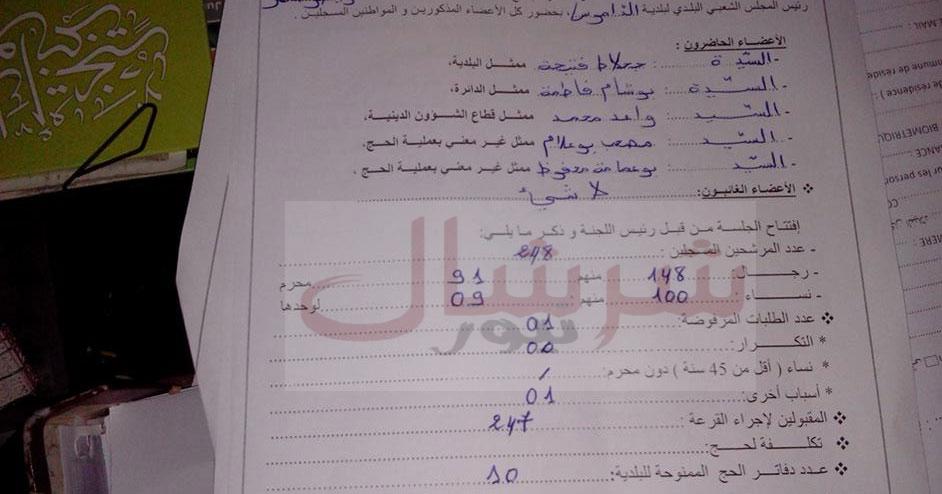 رئيس المجلس الشعبي البلدي لبلدية الداموس، بحضور كل الأعضاء المذكورين و المواطنين المسجلين.
الأعضاء الحاضرون :
- السيدة : جعلاط فتيحة ممثل البلدية،
- السيدة : بوشام فاطمة ممثل الدائرة،
- السيد : واعد محمد ممثل قطاع الشؤون الدينية،
- السيد : مصعب بوعلام ممثل غير معني بعملية الحج،
- السيد : بوعمامة محفوظ ممثل غير معني بعملية الحج .
❖ الأعضاء الغائبون: لا شيء
إفتتاح الجلسة من قبل رئيس اللجنة و ذكر ما يلي:
- عدد المرشحين المسجلين : 248
- رجال 148 منهم : 91 محرم
- نساء 100 منهم : 09 لوحدها
❖ عدد الطلبات المرفوضة: 01
* التكرار: 00
* نساء ( أقل من 45 سنة ) دون محرم: /
* أسباب أخرى: 01
❖ المقبولين لإجراء القرعة : 247
❖ تكلفة لحج:
❖ عدد دفاتر الحج الممنوحة للبلدية: 10
شرشال
نيوز
MAIL
mmune de réside
de résidence ) :
BIOMETRIQU
ANCE :
ur les person